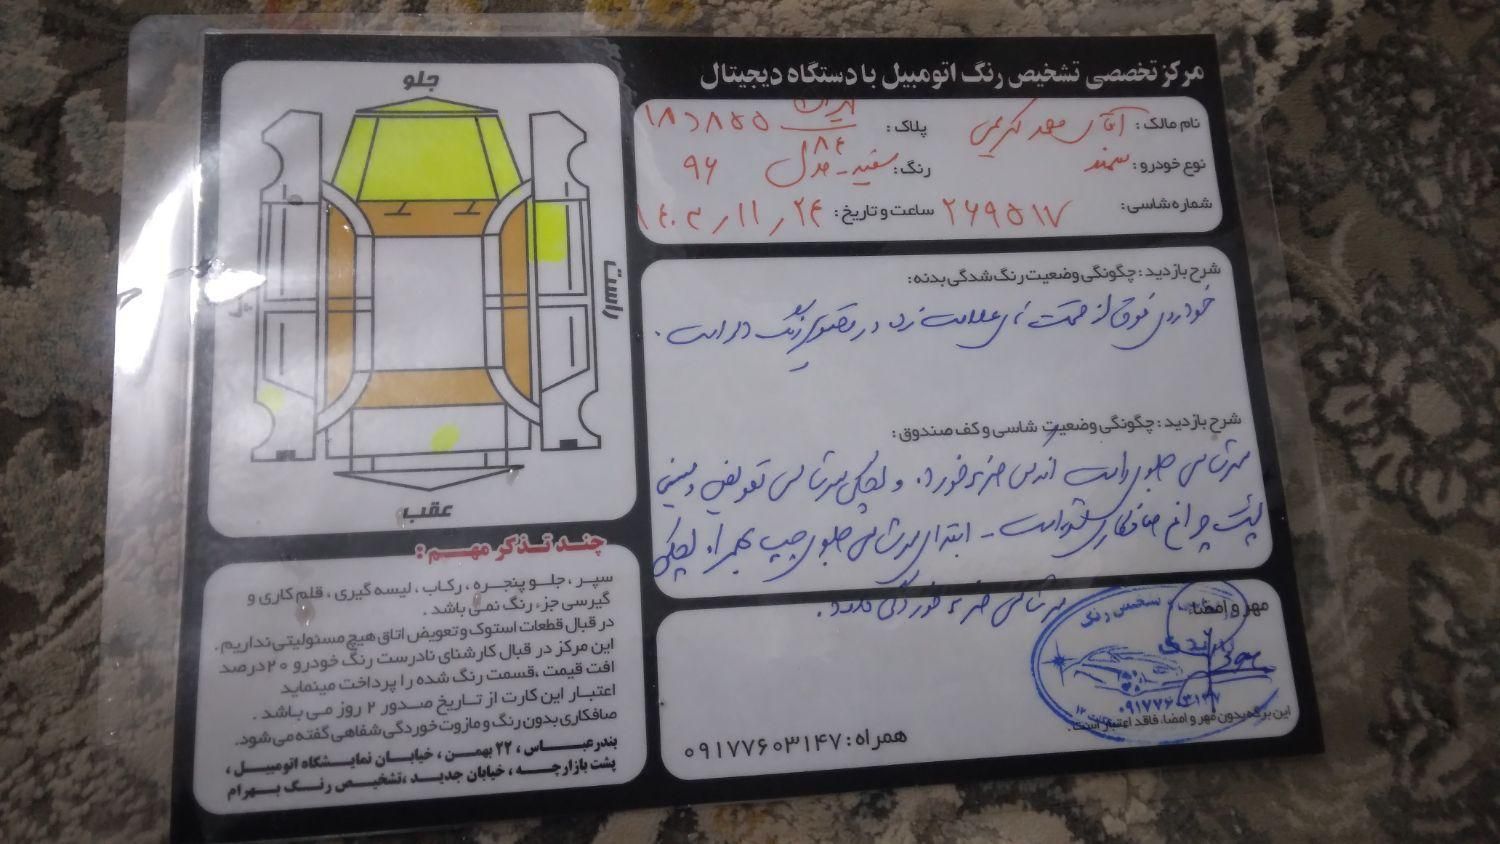 مرکز تخصصی تشخیص رنگ اتومبیل با دستگاه دیجیتال
نام مالک : آقای محمد کریمی
پلاک : ایران ۸۴ ۱۸د۸۵۵
نوع خودرو : سمند
رنگ : سفید - مدل ۹۶
شماره شاسی : ۲۶۹۵۱۷
ساعت و تاریخ : ۱۴۰۳/۱۱/۲۴
شرح بازدید : چگونگی وضعیت رنگ شدگی بدنه :
خودروی فوق از قسمت های علامت زده در تصویر رنگ دار است .
شرح بازدید : چگونگی وضعیت شاسی و کف صندوق :
سرشاسی جلو راست اندکی ضربه خورده و لچکی سرشاسی تعویض و سینی
پشت چراغ صافکاری شده است - ابتدای سرشاسی جلوی چپ بهمراه لچکی
سرشاسی ضربه خوردگی دارد .
مهر و امضا :
تشخیص رنگ
۰۹۱۷۷۶۰۳۱۴۷
این برگه بدون مهر و امضا، فاقد اعتبار است.
همراه : ۰۹۱۷۷۶۰۳۱۴۷
جلو
راست
عقب
چند تذکر مهم :
سپر ، جلو پنجره ، رکاب ، لیسه گیری ، قلم کاری و
گیرسی جزء رنگ نمی باشد .
در قبال قطعات استوک و تعویض اتاق هیچ مسئولیتی نداریم .
این مرکز در قبال کارشنای نادرست رنگ خودرو ۲۰ درصد
افت قیمت ،قسمت رنگ شده را پرداخت مینماید
اعتبار این کارت از تاریخ صدور ۲ روز می باشد .
صافکاری بدون رنگ و مازوت خوردگی شفاهی گفته می شود.
بندرعباس ، ۲۲ بهمن ، خیابان نمایشگاه اتومبیل ،
پشت بازارچه ، خیابان جدید ،تشخیص رنگ بهرام